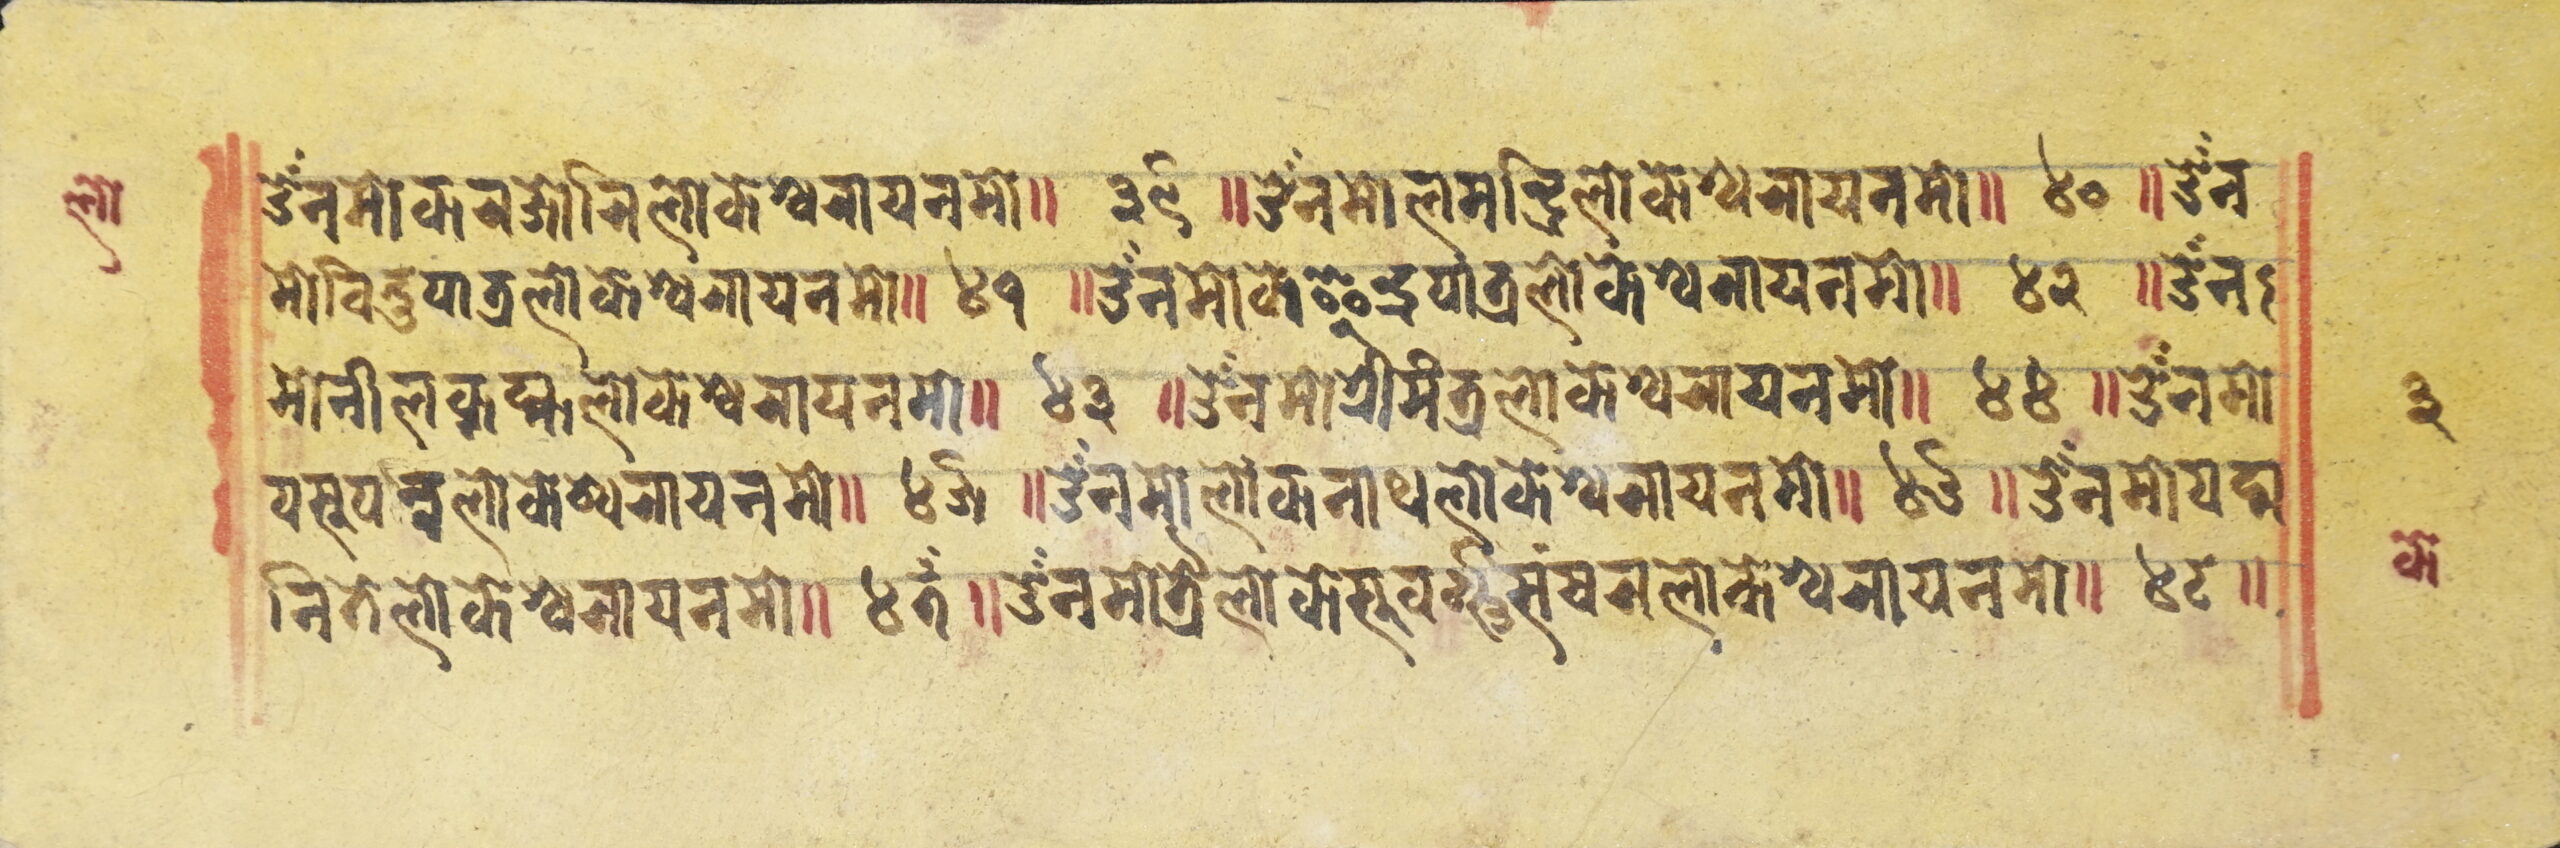 लो
ॐ नमो करञ्जोनि लोकेश्वराय नमो॥ ३९ ॥ॐ नमो लमन्द्रि लोकेश्वराय नमो॥ ४० ॥ॐ न
मो विदुपात्र लोकेश्वराय नमो॥ ४१ ॥ॐ नमो के द्रपात्र लोकेश्वराय नमो॥ ४२ ॥ॐ न
मो नील लोकेश्वराय नमो॥ ४३ ॥ॐ नमो लोकेश्वराय नमो॥ ४४ ॥ॐ नमो
३
लोकेश्वराय नमो॥ ४५ ॥ॐ नमो लोकनाथ लोकेश्वराय नमो॥ ४६ ॥ॐ नमो पद्म
के
निते लोकेश्वराय नमो॥ ४७ ॥ॐ नमो त्रैलोके लोकेश्वराय नमो॥ ४८ ॥